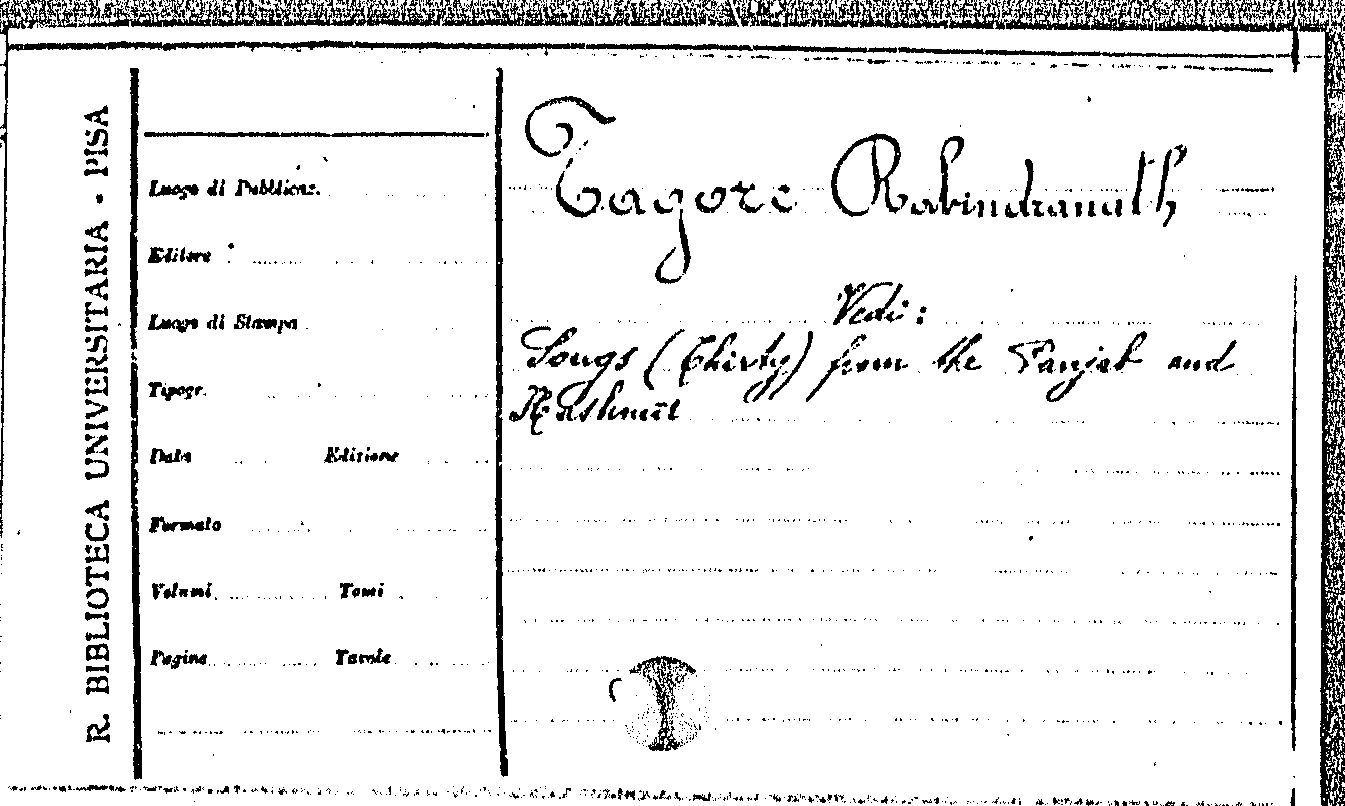 R. BIBLIOTECA UNIVERSITARIA - PISA
Luogo di Pubblicaz.
Editore
Luogo di Stampa
Tipogr.
Data Edizione
Formato
Volumi Tomi
Pagine Tavole
Tagore Rabindranath
Vedi:
Songs (Thirty) from the Panjab and
Kashmir